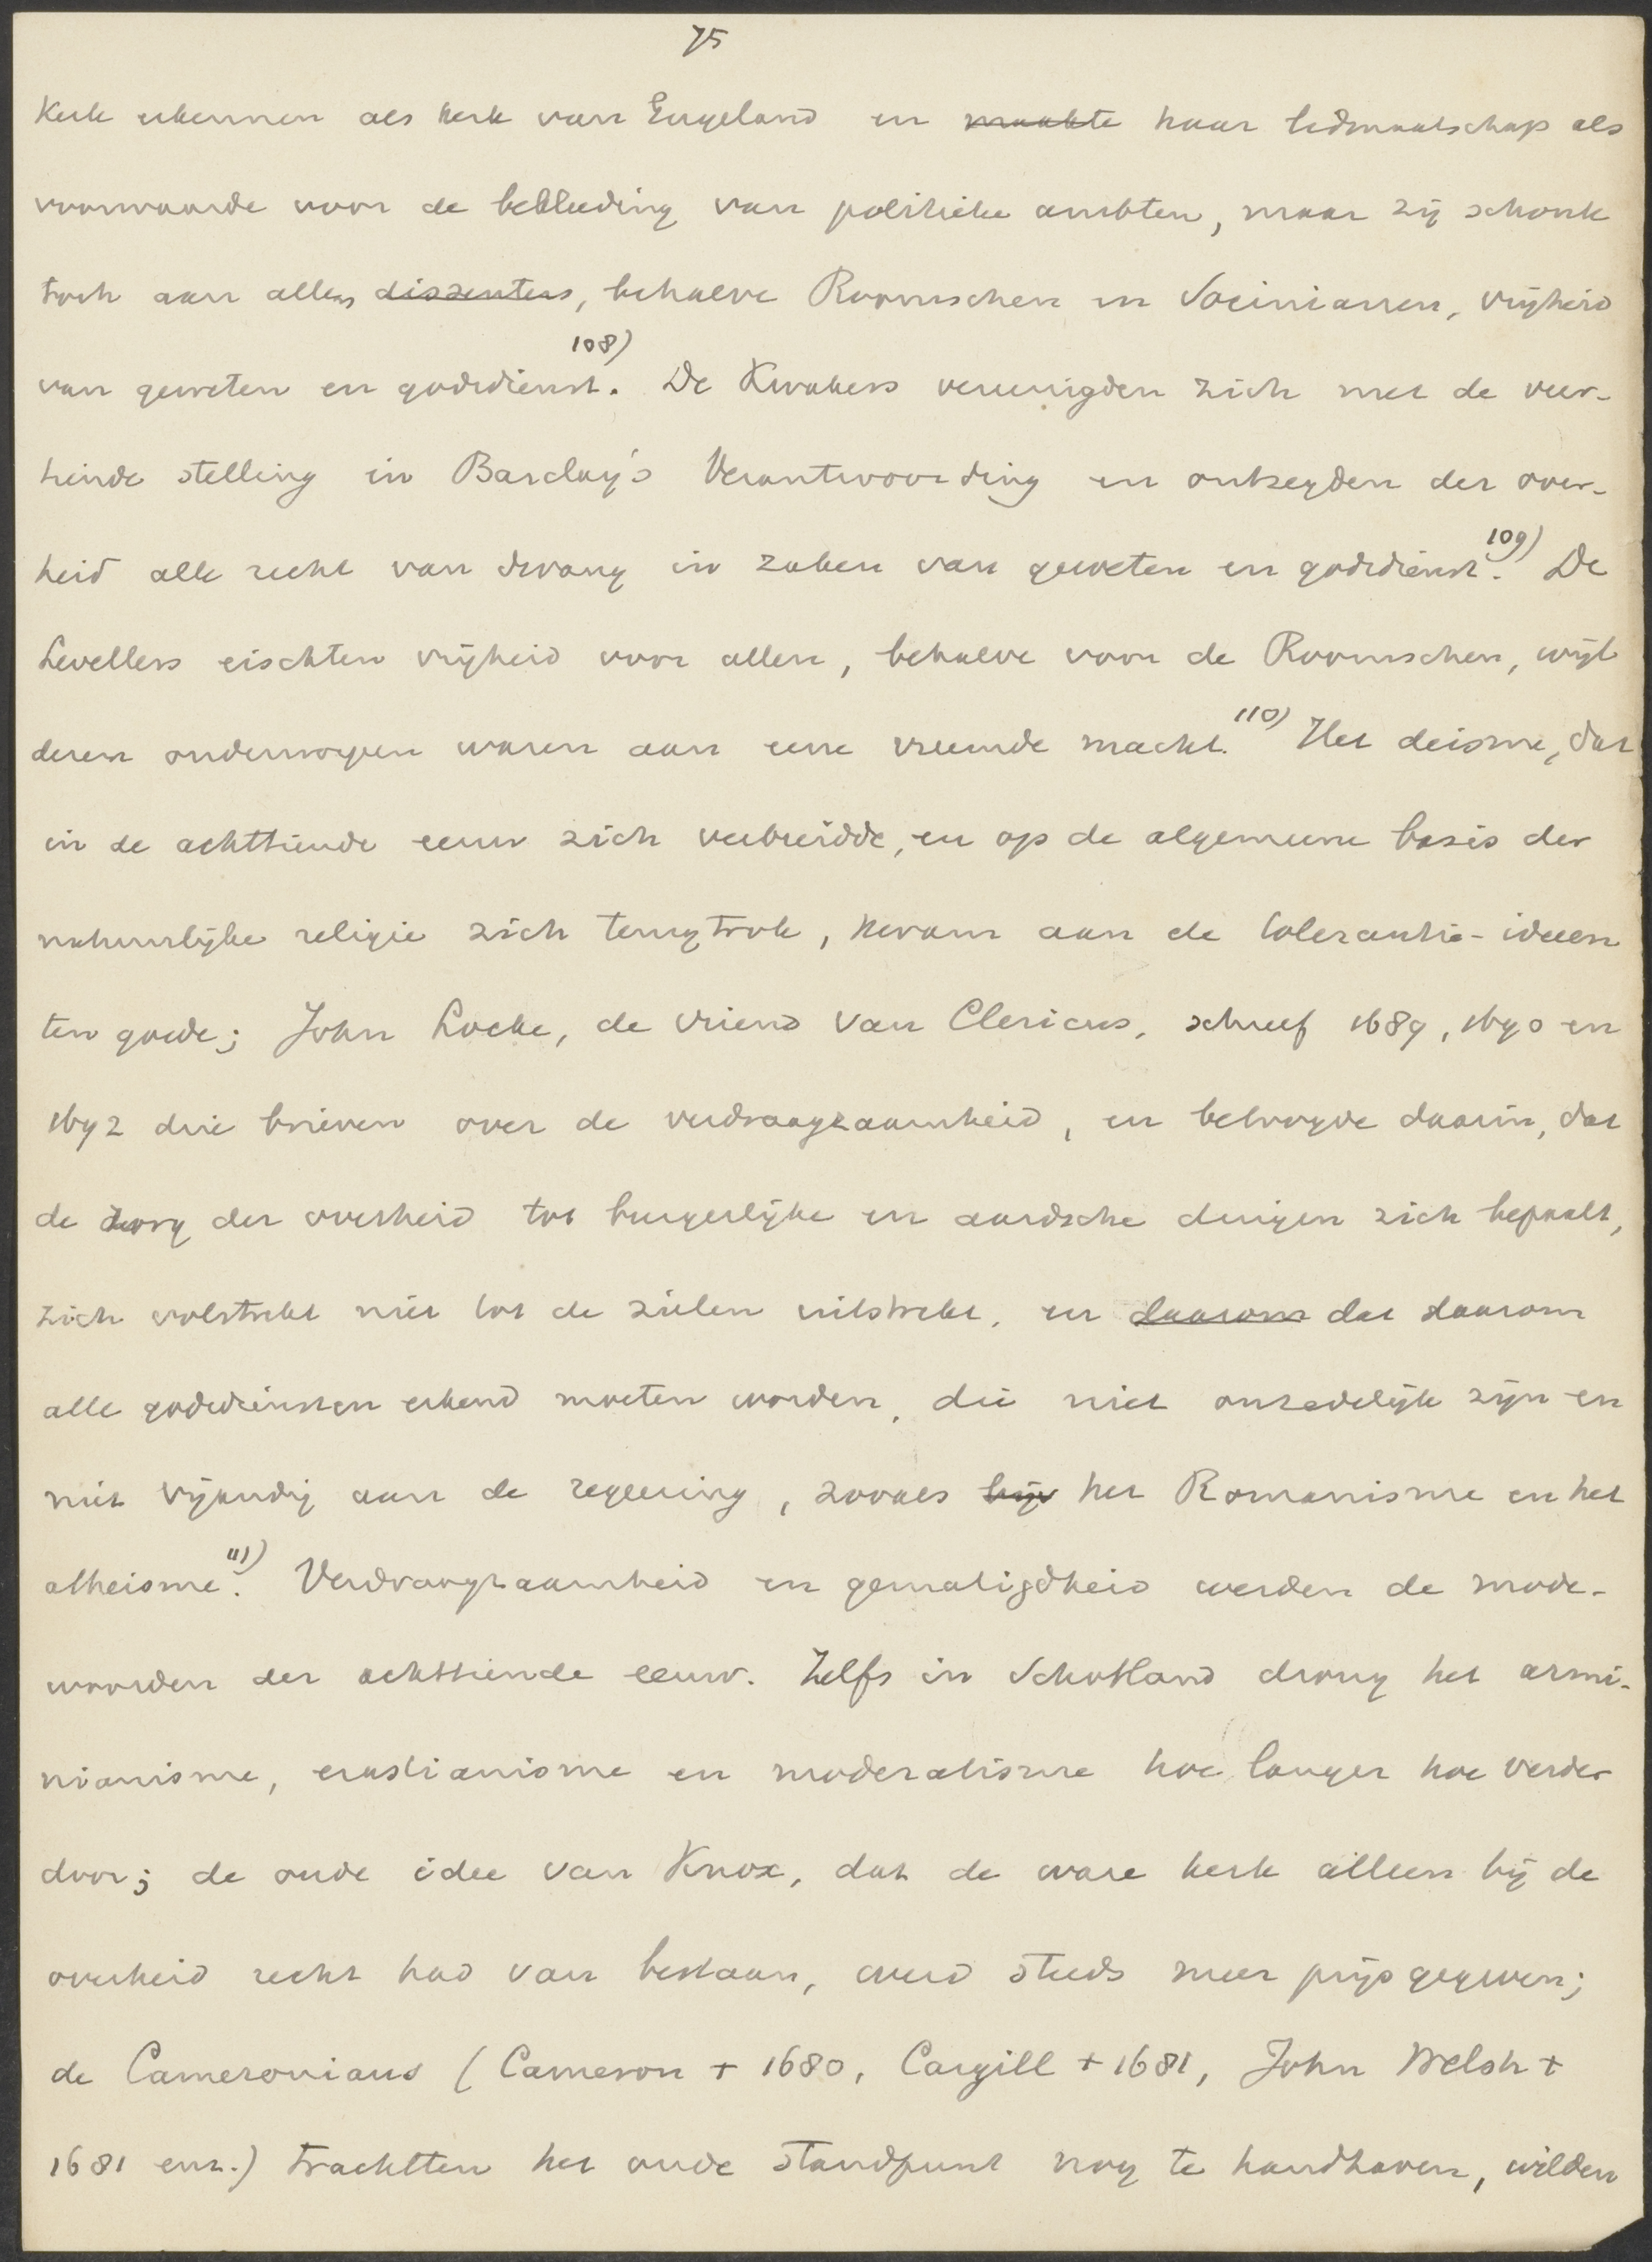 75
Kerk erkennen als kerk van Engeland en maakte haar lidmaatschap als
voorwaarde voor de bekleeding van politieke ambten, maar zij schonk
toch aan allen dissenters, behalve Roomschen en Socinianen, vrijheid
van geweten en godsdienst.108) De Kwakers vereenigden zich met de veer-
tiende stelling in Barclay's Verantwoording en ontzegden der over-
heid alle recht van dwang in zaken van geweten en godsdienst.109) De
Levellers eischten vrijheid voor allen, behalve voor de Roomschen, wijl
dezen onderworpen waren aan eene vreemde macht.110) Het deisme, dat
in de achttiende eeuw zich verbreidde, en op de algemeene basis der
natuurlijke religie zich terugtrok, kwam aan de tolerantie-ideeen
ten goede; John Locke, de vriend van Clericus, schreef 1689, 1690 en
1692 drie brieven over de verdraagzaamheid, en betoogde daarin, dat
de zorg der overheid tot burgerlijke en aardsche dingen zich bepaalt,
zich volstrekt niet tot de zielen uitstrekt, en daarom dat daarom
alle godsdiensten erkend moeten worden, die niet onzedelijk zijn en
niet vijandig aan de regeering, zooals bijv het Romanisme en het
atheisme.111) Verdraagzaamheid en gematigdheid werden de mode-
woorden der achttiende eeuw. Zelfs in Schotland drong het armi-
nianisme, erastianisme en moderatisme hoe langer hoe verder
door; de oude idee van Knox, dat de ware kerk alleen bij de
overheid recht had van bestaan, werd steeds meer prijsgegeven;
de Cameronians (Cameron + 1680, Cargill + 1681, John Welsh +
1681 enz.) trachtten het oude standpunt nog te handhaven, wilden